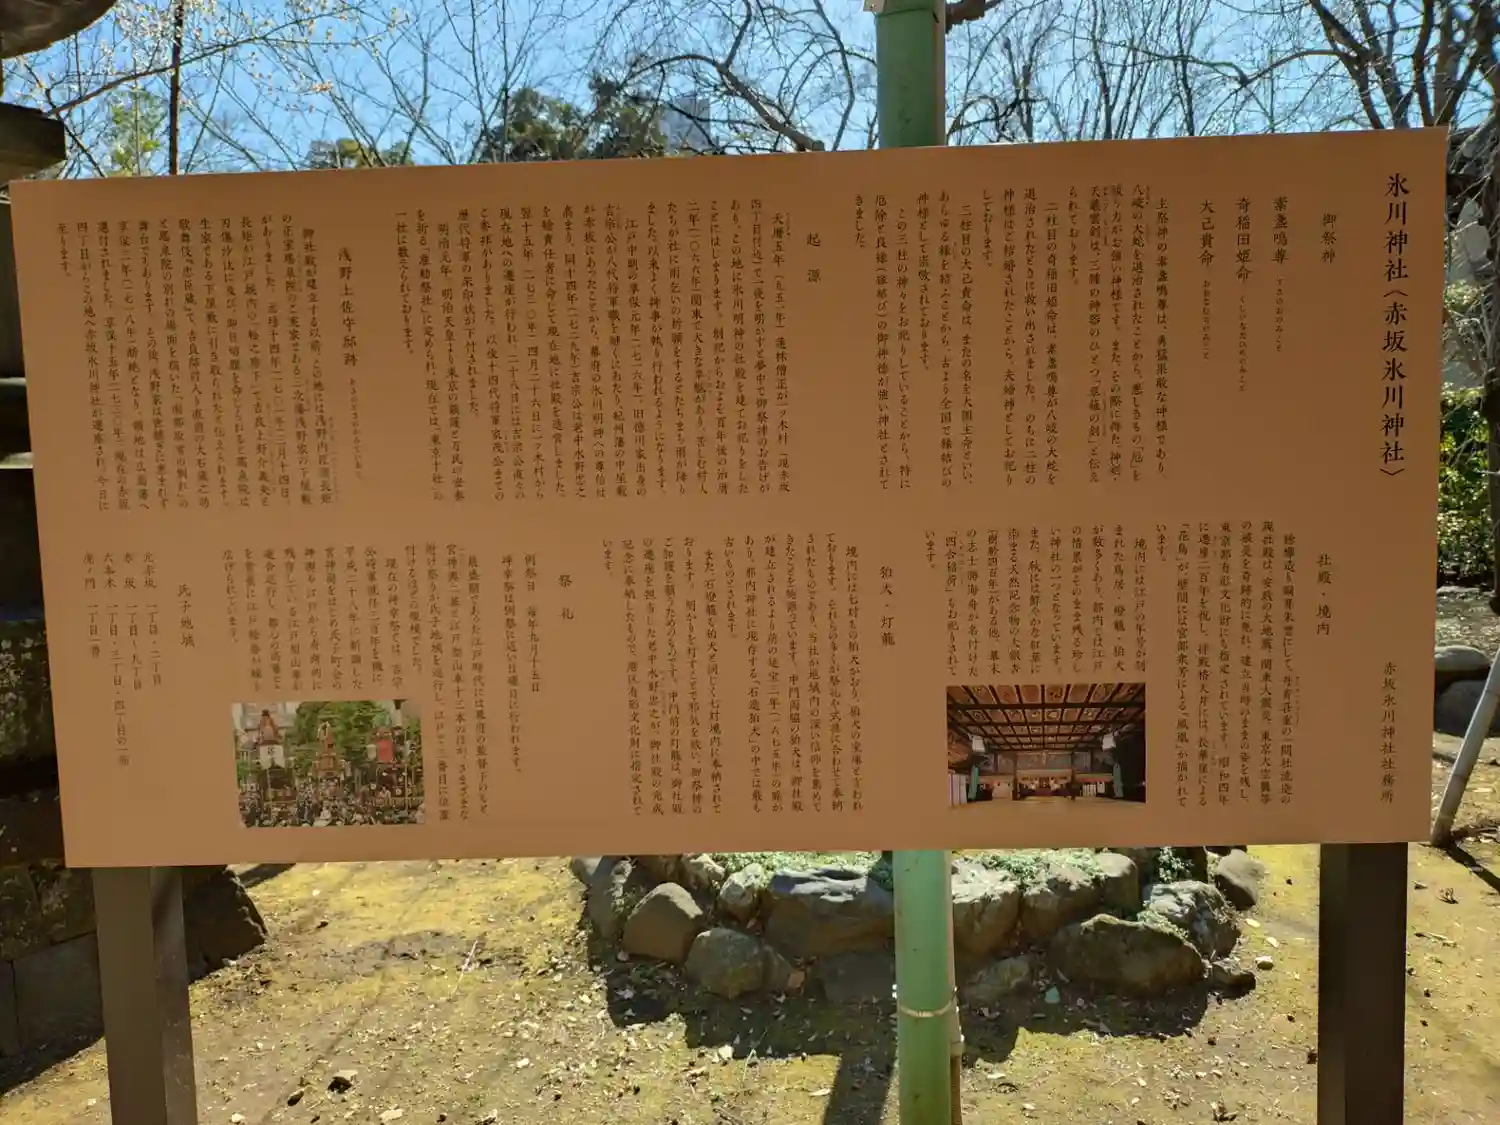 氷川神社〈赤坂氷川神社〉
御祭神
素盞嗚尊 すさのおのみこと
奇稲田姫命 くしいなだひめのみこと
大己貴命 おおなむぢのみこと
主祭神の素盞嗚尊は、勇猛果敢な神様であり、
八岐の大蛇を退治されたことから、悪しきもの「厄」を
祓う力がお強い神様です。また、その際に得た、神剣・
天叢雲剣は、三種の神器のひとつ「草薙の剣」と伝え
られております。
二柱目の奇稲田姫命は、素盞嗚尊が八岐の大蛇を
退治されたときに救い出されました。のちに二柱の
神様はご結婚されたことから、夫婦神としてお祀り
しております。
三柱目の大己貴命は、またの名を大国主命といい、
あらゆる縁を結ぶことから、古より全国で縁結びの
神様として崇敬されております。
この三柱の神々をお祀りしていることから、特に
厄除と良縁（縁結び）の御神徳が強い神社とされて
きました。
起 源
天暦五年（九五一年）蓮林僧正が一ツ木村（現赤坂
四丁目付近）で一夜を明かすと夢中で御祭神のお告げが
あり、この地に氷川明神の社殿を建てお祀りをした
ことにはじまります。創祀からおよそ百年後の治暦
二年（一〇六六年）関東で大きな旱魃があり、苦しむ村人
たちが社に雨乞いの祈願をするとたちまち雨が降り
ました。以来よく神事が執り行われるようになります。
江戸中期の享保元年（一七一六年）、旧徳川家出身の
吉宗公が八代将軍職を継ぐにあたり、紀州藩の中屋敷
が赤坂にあったことから、幕府の氷川明神への尊信は
高まり、同十四年（一七二九年）吉宗公は老中水野忠之
を総責任者に命じて現在地に社殿を造営しました。
翌十五年（一七三〇年）四月二十六日に一ツ木村から
現在地への遷座が行われ、二十八日には吉宗公直々の
ご参拝がありました。以後十四代将軍家茂公までの
歴代将軍の朱印状が下付されました。
明治元年、明治天皇より東京の鎮護と万民の安泰
を祈る「准勅祭社」に定められ、現在では、「東京十社」の
一社に数えられております。
浅野土佐守邸跡 あさのとさのかみていあと
御社殿が建立する以前、この地には浅野内匠頭長矩
の正室瑤泉院のご実家である三次藩浅野家の下屋敷
がありました。元禄十四年（一七〇一年）三月十四日、
長矩が江戸城内の「松之廊下」で吉良上野介義央と
刃傷沙汰に及び、即日切腹を命じられると瑤泉院は
生家である下屋敷に引き取られたと伝えられます。
歌舞伎「忠臣蔵」で、吉良邸討入り直前の大石蔵之助
と瑤泉院の別れの場面を描いた「南部坂雪の別れ」の
舞台であります。その後、浅野家は世継ぎに恵まれず
享保三年（一七一八年）断絶となり、領地は広島藩へ
還付されました。享保十五年（一七三〇年）現在の赤坂
四丁目からこの地へ赤坂氷川神社が遷座され、今日に
至ります。
赤坂氷川神社社務所
社殿・境内
総欅造り銅葺朱塗にして、丹青荘重の一間社流造の
現社殿は、安政の大地震、関東大震災、東京大空襲等
の被災を奇跡的に免れ、建立当時のままの姿を残し、
東京都有形文化財にも指定されています。昭和四年
に遷座二百年を祝し、拝殿格天井には、長華崖による
「花鳥」が、壁間には宮部衆芳による「鳳凰」が描かれて
います。
境内には江戸の年号が刻
まれた鳥居・燈籠・狛犬
が数多くあり、都内では江戸
の情景がそのまま残る珍し
い神社の一つとなっています。
また、秋には鮮やかな紅葉に
染まる天然記念物の大銀杏
（樹齢四百年）がある他、幕末
の志士・勝海舟が名付けた
「四合稲荷」もお祀りされて
います。
狛犬・灯籠
境内には七対もの狛犬がおり、狛犬の宝庫といわれ
ております。それらの多くが祭礼や式典に合わせて奉納
されたものであり、当社が地域内の深い信仰を集めて
きたことを物語っています。中門両脇の狛犬は、御社殿
が建立されるより前の延宝三年（一六七五年）の銘が
あり、都内神社に現存する「石造狛犬」の中では最も
古いものとされます。
また、石燈籠も狛犬と同じく七対境内に奉納されて
おります。明かりを灯すことで邪気を祓い、御祭神の
ご加護を願うためのものです。中門前の灯籠は、御社殿
の遷座を担当した老中水野忠之が、御社殿の完成
記念に奉納したもので、港区有形文化財に指定されて
います。
祭 礼
例祭日 毎年九月十五日
神幸祭は例祭に近い日曜日に行われます。
最盛期であった江戸時代には幕府の監督下のもと
宮神輿二基と江戸型山車十三本のほか、さまざまな
附け祭りが氏子地域を巡行し、江戸で三番目に位置
付けるほどの規模でした。
現在の神幸祭では、吉宗
公将軍就任三百年を機に、
平成二十八年に新調した
宮神輿をはじめ氏子町会の
神輿も江戸から奇跡的に
残存している江戸型山車が
連合巡行し、都心の高層ビル
を背景に江戸絵巻が繰り
広げられています。
氏子地域
元赤坂 一丁目・二丁目
赤 坂 一丁目〜九丁目
六本木 一丁目・二丁目・四丁目の一部
虎ノ門 二丁目一番